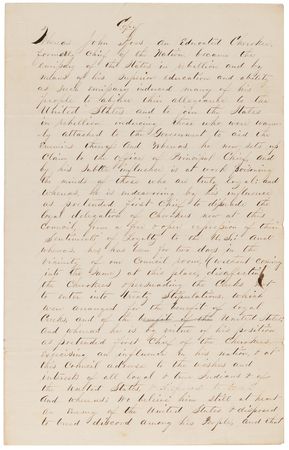 Copy
Whereas John Ross, an Educated Cherokee,
formerly Chief of the Nation became the
emissary of the States in rebellion and by
means of his superior education and ability
as such emissary induced many of his
people to abjure their allegiance to the
United States and to join the States
in rebellion inducing those who were warm
ly attached to the Government to aid the
Enemies thereof and Whereas he now sets up
Claim to the office of Principal Chief and
by his Subtle influence is at work poisoning
the minds of those who are truly loyal: and
Whereas he is endeavoring by his influence
as pretended first Chief to dissuade the
loyal delegation of Cherokees now at this
Council from a free & open expression of their
Sentiments of Loyalty to the U.S. And
whereas he has been for two days in the
vicinity of our Council room (without coming
into the same) at this place, disaffecting
the Cherokees & persuading the Creeks not
to enter into Treaty Stipulations, which
were arranged for the benefit of loyal
Creeks and of the United States
and whereas he is by virtue of his position
as pretended first Chief of the Cherokees
exercising an influence by his nation & at
this Council adverse to the wishes and
interests of all loyal & true Indians & of
the United States
And whereas We believe him still at heart
an Enemy of the United States & disposed
to breed discord among his People, and that